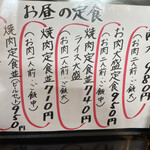 お昼の定食
980円
(お肉二人前、ご飯大)
お肉大盛定食950円
(お肉二人前、ご飯中)
焼肉定食並740円
ライス大盛
(お肉一人前、ご飯大)
焼肉定食並710円
(お肉一人前、ご飯中)
焼肉定食並950円